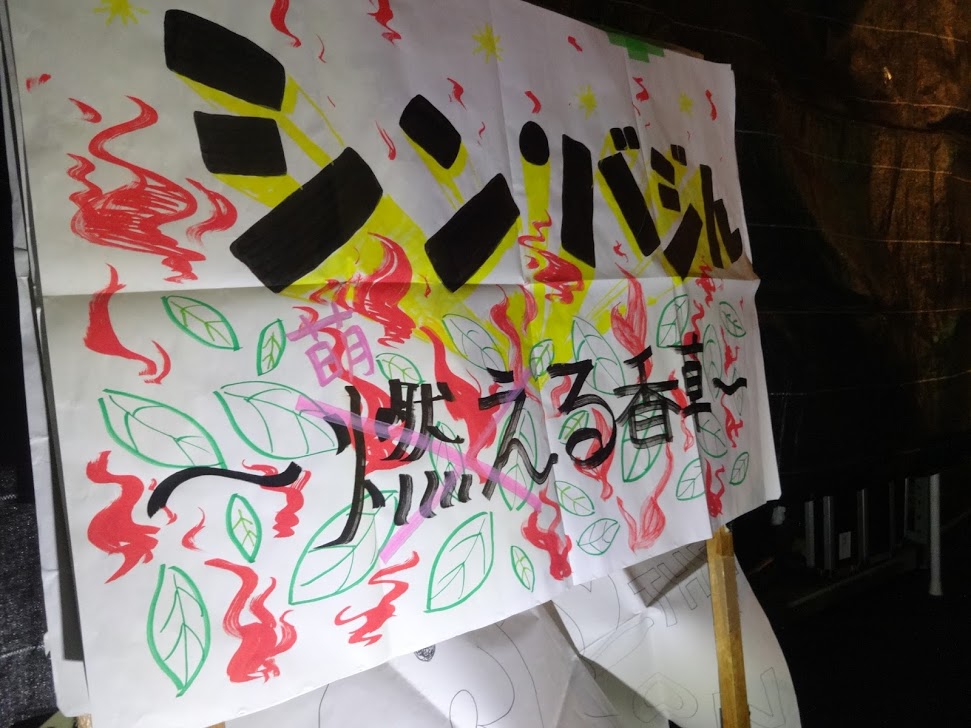 シン・バジル
萌
～燃える香草～